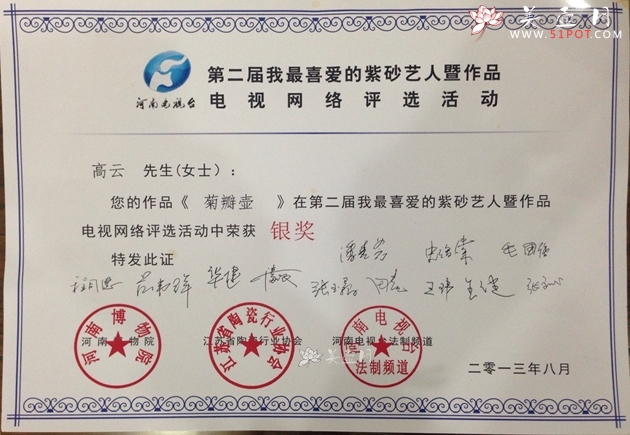 美壶网
WWW.51POT.COM
河南电视台
第二届我最喜爱的紫砂艺人暨作品
电视网络评选活动
高云 先生(女士):
您的作品《 菊瓣壶 》在第二届我最喜爱的紫砂艺人暨作品
电视网络评选活动中荣获 银奖
特发此证
河南博物院 江苏省陶瓷行业协会 河南电视台法制频道
河南博物院
江苏省陶瓷行业协会
河南电视台
法制频道
美壶网
二零一三年八月